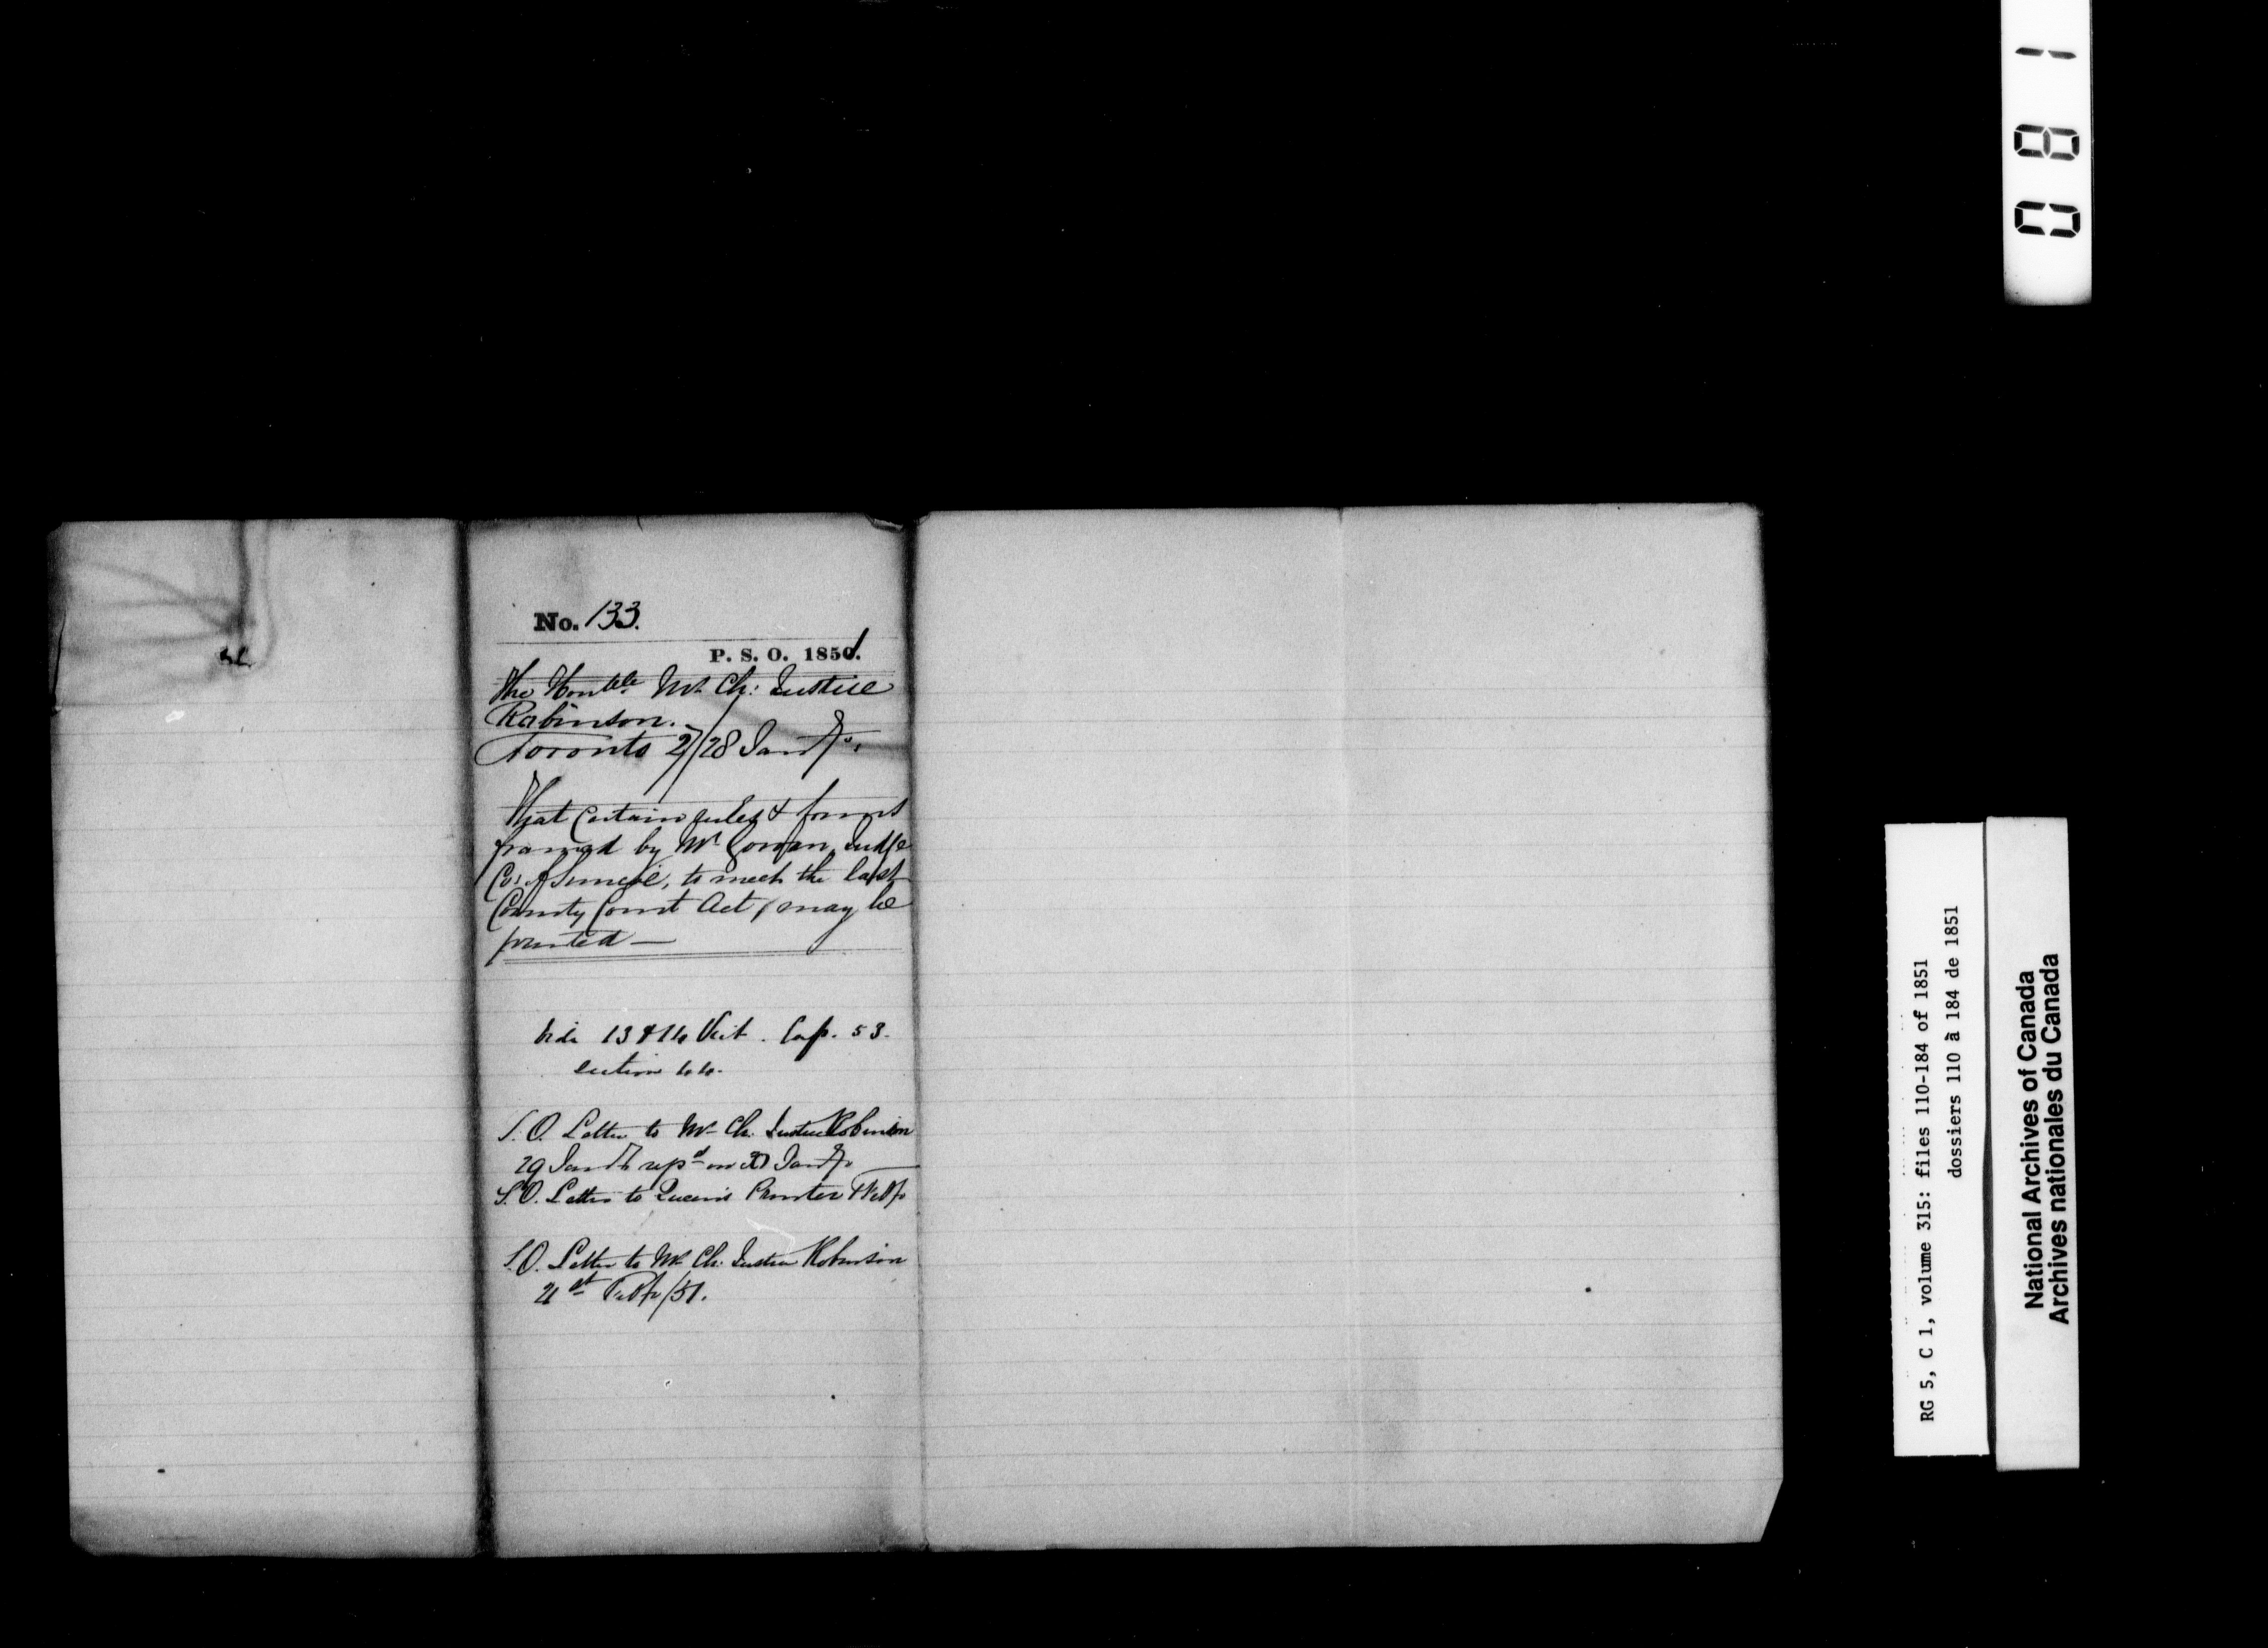 No. 133.
P. S. O. 1851.
The Honble. Mr. Ch: Justice
Robinson.
Toronto 27/28 Jany.
That Certain rules & forms
framed by Mr Gowan, Judge
Co: of Simcoe, to meet the last
County Court Act, may be
printed —
Vide 13 & 14 Vict. Cap. 53.
section 44.
S. O. Letter to Mr Ch. Justice Robinson
29 Jany on 30 Jany
S. O. Letter to Queen's Printer Feby
S. O. Letter to Mr Ch. Justice Robinson
21st Feby/51.
081
RG 5, C 1, volume 315: files 110-184 of 1851
dossiers 110 à 184 de 1851
National Archives of Canada
Archives nationales du Canada